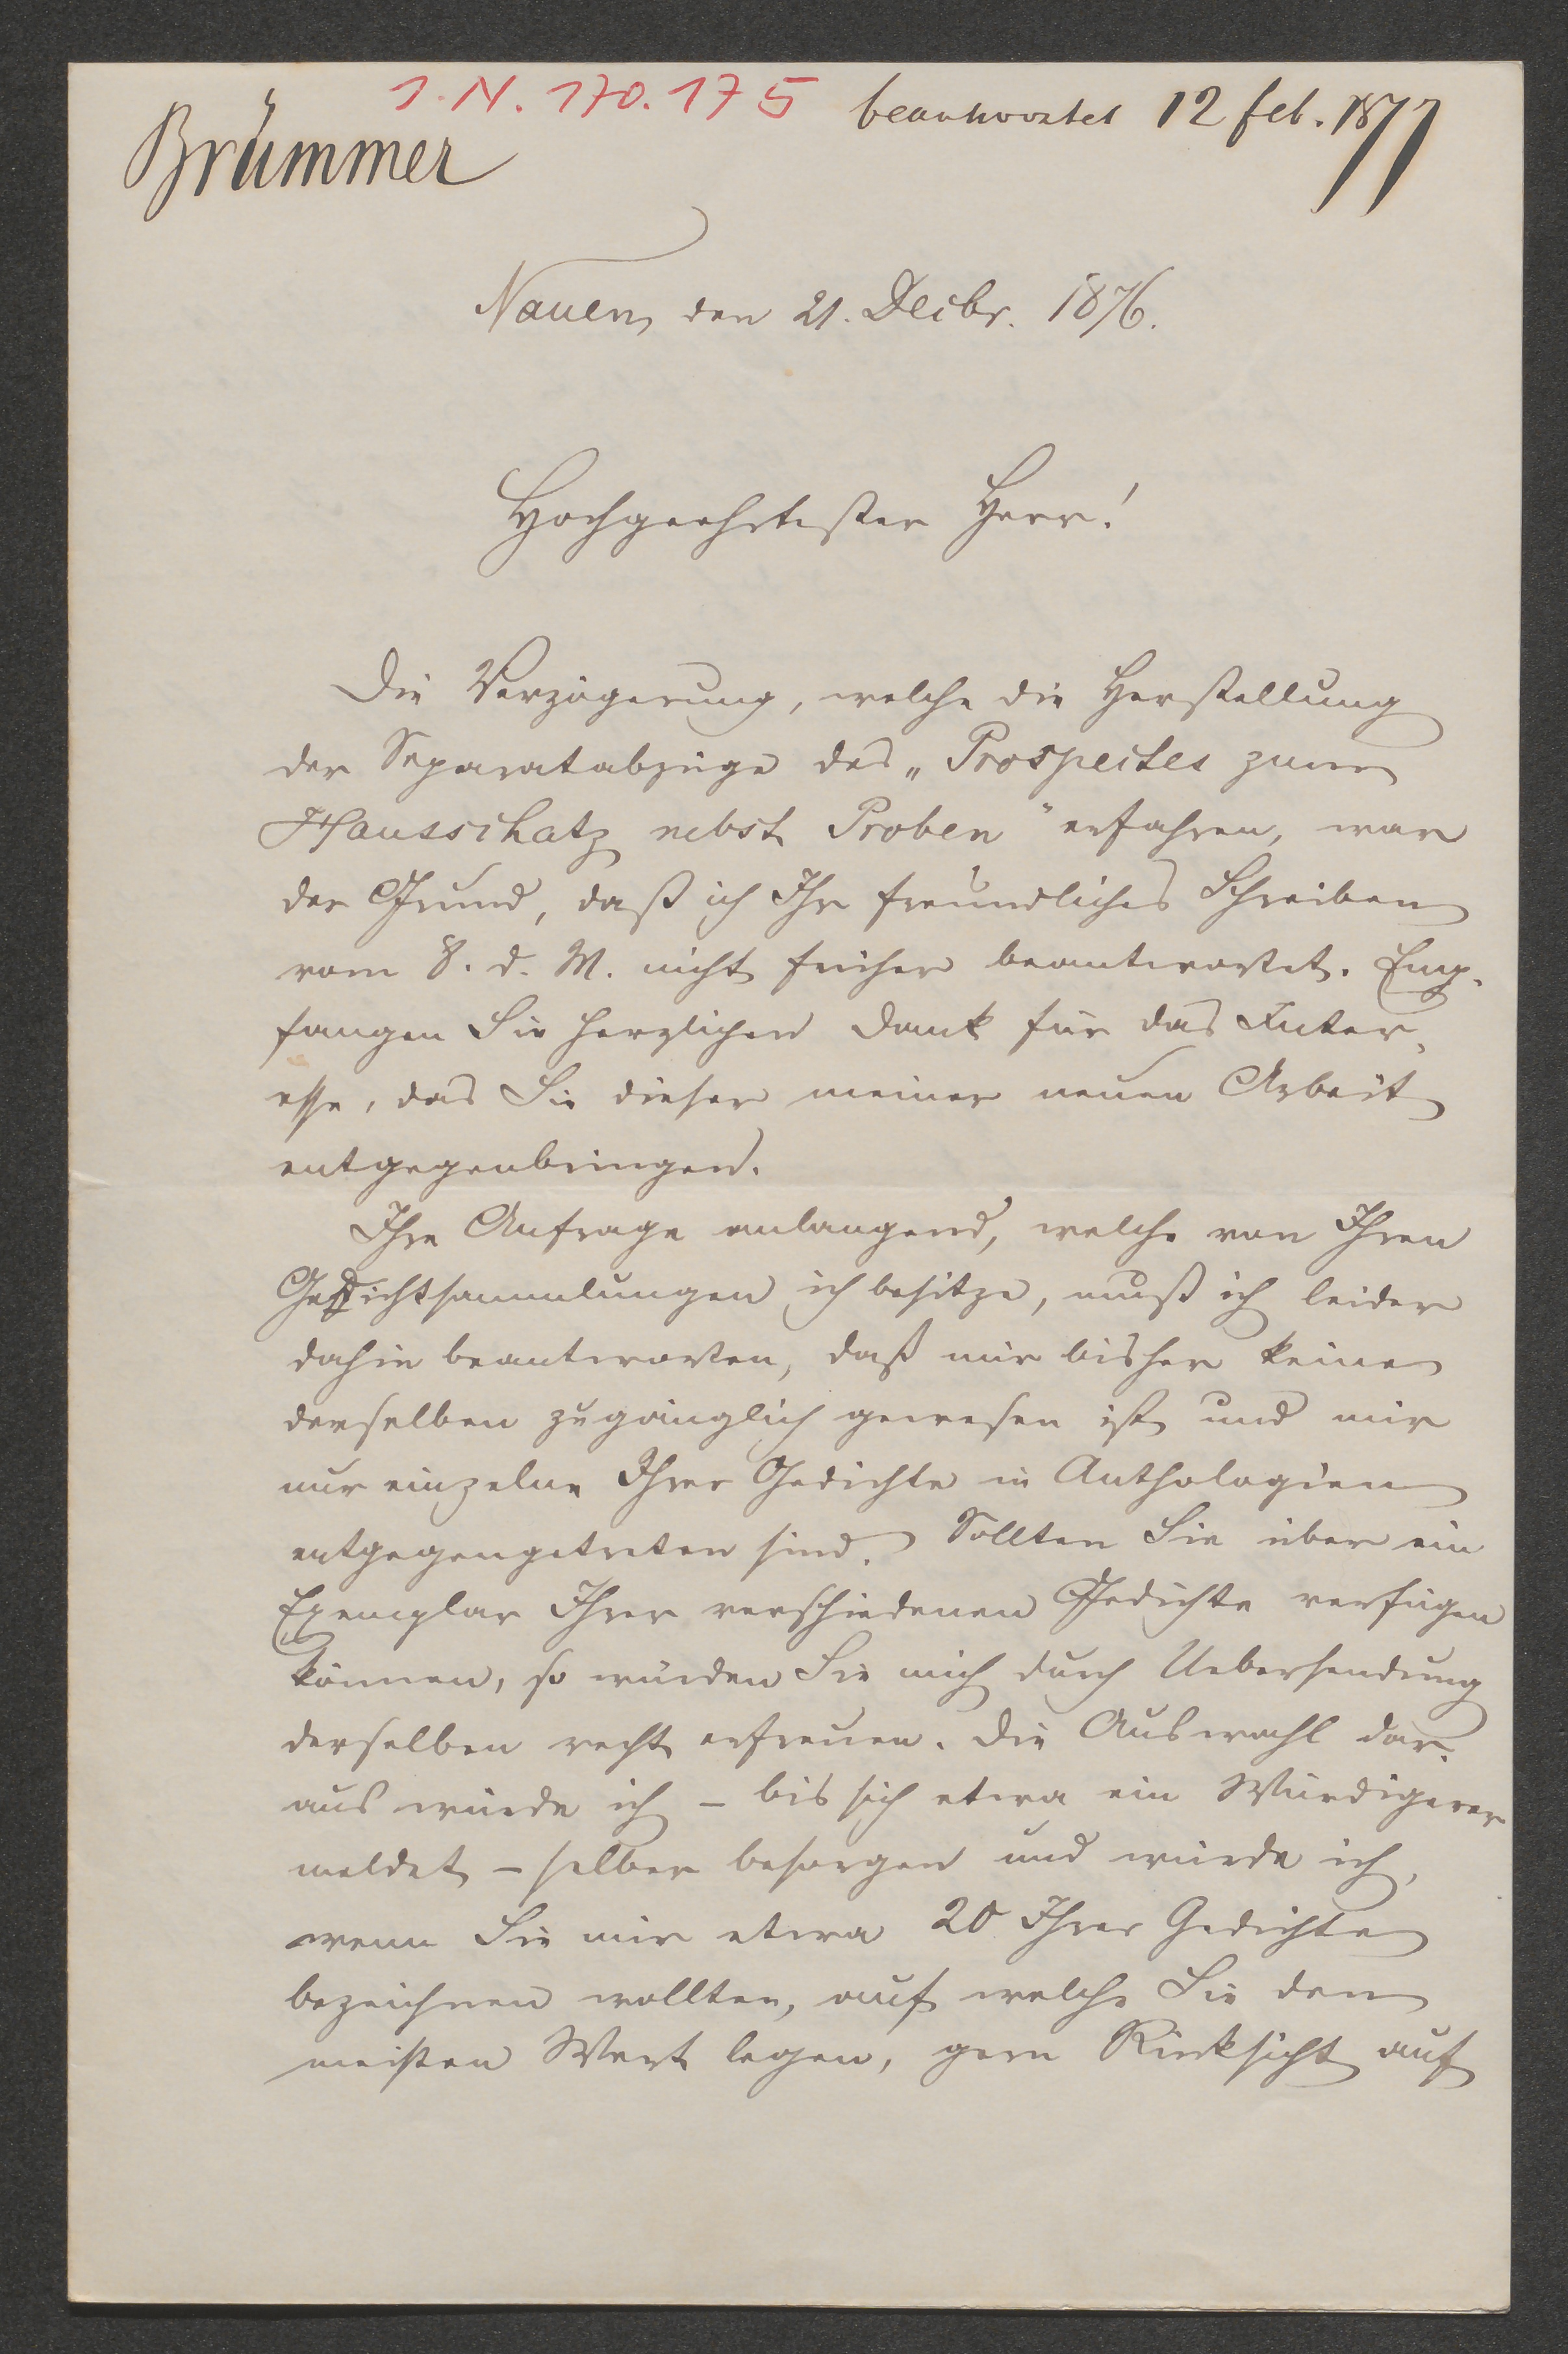 I. N. 170.175 beantwortet 12 feb. 1877
Brümmer
Nauen, den 21. Decbr. 1876.
Hochgeehrtester Herr!
Die Verzögerung, welche die Herstellung
der Separatabzüge des „Prospectes zum
Hausschatz nebst Proben" erfahren, war
der Grund, daß ich Ihr freundliches Schreiben
vom 8. d. M. nicht früher beantwortet. Emp-
fangen Sie herzlichen Dank für das Inter-
esse, das Sie dieser meiner neuen Arbeit
entgegenbringen.
Ihre Anfrage anlangend, welche von Ihren
Gedichtsammlungen ich besitze, muß ich leider
dahin beantworten, daß mir bisher keine
derselben zugänglich gewesen ist und mir
nur einzelne Ihrer Gedichte in Anthologien
entgegengetreten sind. Sollten Sie über ein
Exemplar Ihrer verschiedenen Gedichte verfügen
können, so würden Sie mich durch Uebersendung
derselben recht erfreuen. Die Auswahl dar-
aus würde ich – bis sich etwa ein Würdigerer
meldet – selber besorgen und würde ich,
wenn Sie mir etwa 20 Ihrer Gedichte
bezeichnen wollten, auf welche Sie den
meisten Wert legen, gern Rücksicht auf